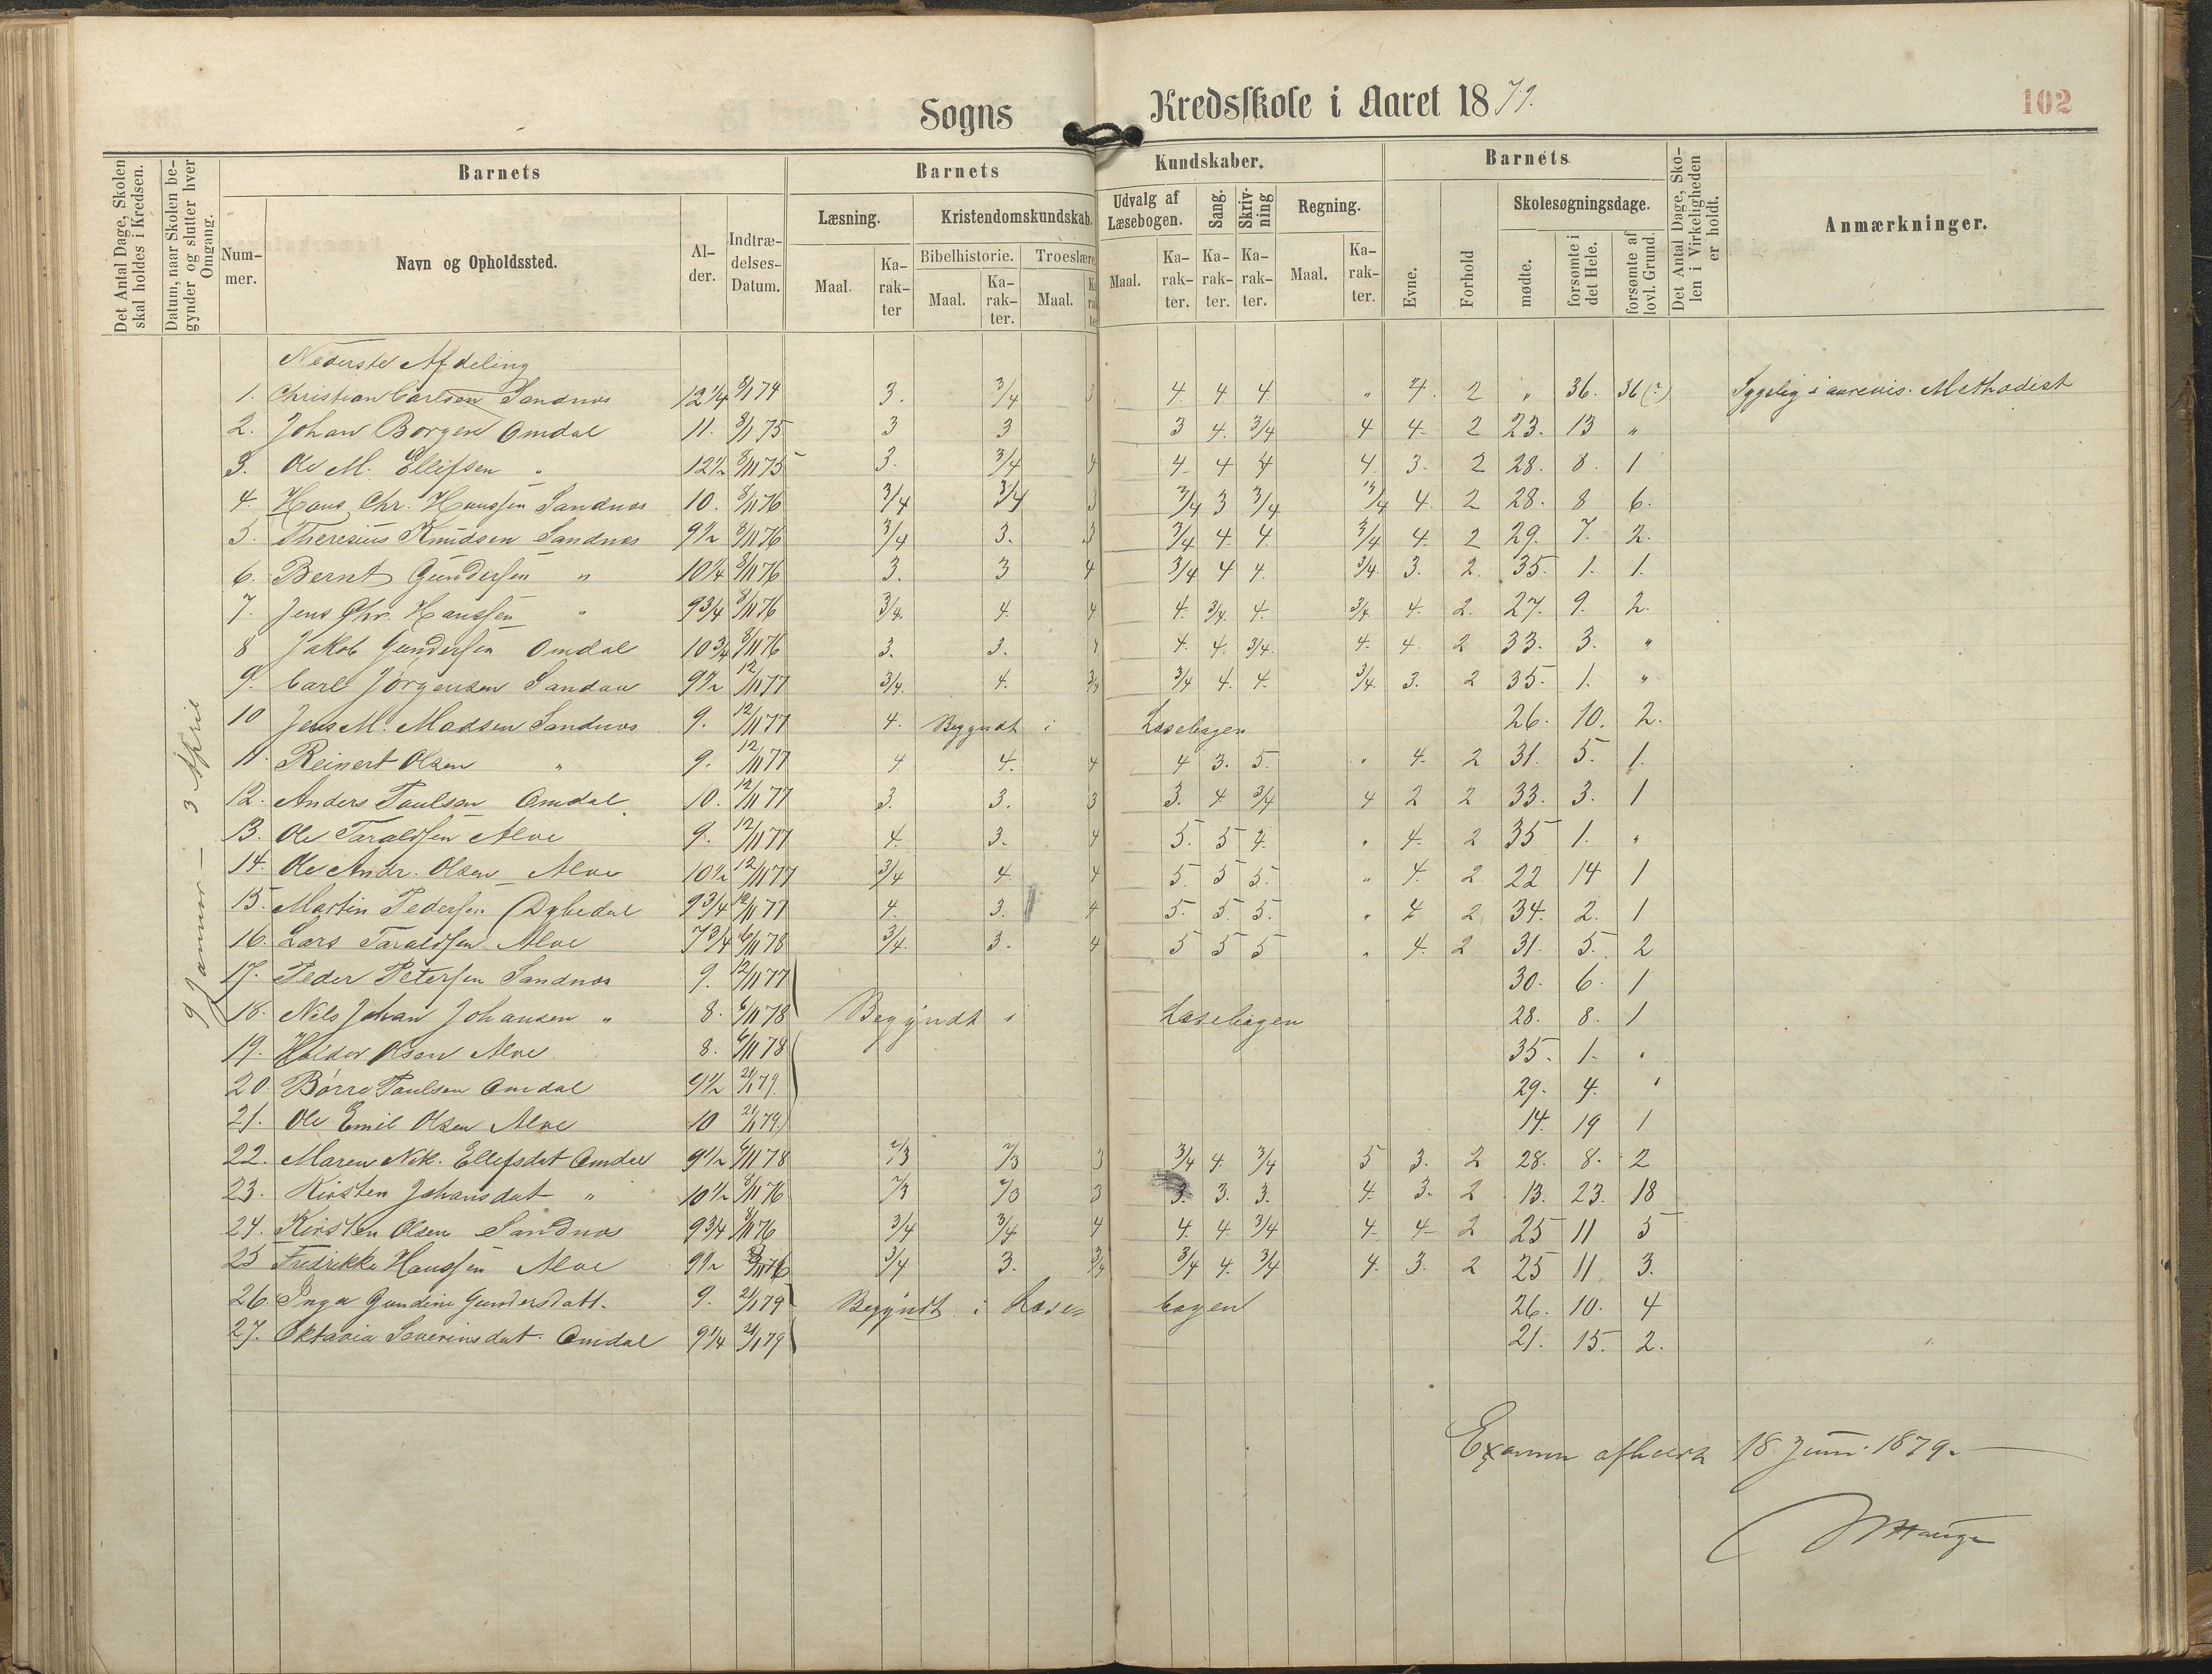 Sogns Kredsskole i Aaret 1879.
102
Det Antal Dage, Skolen skal holdes i Kredsen.
Datum, naar Skolen begynder og slutter hver Omgang.
Barnets
Barnets
Kundskaber.
Barnets
Det Antal Dage, Skolen i Virkeligheden er holdt.
Anmærkninger.
Nummer.
Navn og Opholdssted.
Alder.
Indtrædelses-Datum.
Læsning.
Kristendomskundskab.
Udvalg af Læsebogen.
Sang.
Skrivning
Regning.
Evne.
Forhold
Skolesøgningsdage.
Bibelhistorie.
Troeslære
Maal.
Karakter
Maal.
Karakter.
Maal.
Maal.
Karakter.
Karakter.
Karakter.
Maal.
Karakter.
mødte.
forsømte i det Hele.
forsømte af lovl. Grund.
9 Januar – 3 April
Nederste Afdeling
1. Christian Carlsen Sandnes 12 1/4 8/1 74 3. 3/4 3 4. 4 4. " 4. 2 " 36. 36(?) Sygelig i aarevis. Methodist
2. Johan Borgen Omdal 11. 8/1 75 3 3 3 4. 3/4 4 4. 2 23. 13 "
3. Ole M. Ellifsen " 12 1/2 8/11 75 3. 3/4 4 4. 4 4 4. 3. 2 28. 8. 1
4. Hans Chr. Hanssen Sandnes 10. 8/11 76 3/4 3/4 3 3/4 3 3/4 3/4 4. 2 28. 8 6.
5. Theresius Knudsen Sandnes 9 1/2 8/11 76 3/4 3. 3 3/4 4. 4. 3/4 4. 2 29. 7. 2.
6. Bernt Gundersen " 10 1/4 8/11 76 3. 3 4 3/4 4 4. 3/4. 3. 2. 35. 1. 1.
7. Jens Chr. Hanssen " 9 3/4 8/11 76 3/4. 4. 4 4. 3/4. 4. 3/4. 4. 2. 27. 9. 2.
8 Jakob Gundersen Omdal 10 3/4 8/11 76 3. 3. 4 4. 4. 3/4. 4. 4. 2 33. 3. "
9. Carl Jörgensen Sandnes 9 1/2 12/11 77 3/4. 4. 3/4 3/4 4. 4. 3/4. 3. 2 35. 1. "
10 Jens M. Madsen Sandnes 9. 12/11 77 4. Begyndt i Læsebogen 26. 10. 2.
11. Reinert Olsen " 9. 12/11 77 4. 4. 4 4 3. 5. " 4. 2 31. 5. 1.
12. Anders Paulsen Omdal 10. 12/11 77 3. 3. 3 3. 4 3/4 4 2 2 33. 3. 1
13. Ole Taraldsen Alve 9. 12/11 77 4. 3. 4 5. 5 4. " 4. 2 35 1. "
14. Ole Andr. Olsen Alve 10 1/2 12/11 77 3/4 4. 4 5. 5 5. " 4. 2 22 14 1
15. Martin Pedersen Dybedal 9 3/4 12/11 77 4. 3. 4 5. 5. 5. " 4 2 34. 2. 1
16. Lars Taraldsen Alve 7 3/4 6/11 78 3/4. 3. 4 5 5 5 " 4. 2 31. 5. 2
17. Peder Petersen Sandnes 9. 12/11 77 30. 6. 1
18. Nils Johan Johansen " 8. 6/11 78 Begyndt i Læsebogen 28. 8. 1
19. Haldor Olsen Alve 8. 6/11 78 35. 1. "
20. Börre Paulsen Omdal 9 1/2 21/1 79. 29. 4. "
21. Ole Emil Olsen Alve 10 21/1 79. 14. 19 1
22. Maren Nik. Ellefsdat Omdal 9 1/2 6/11 78 2/3 2/3 3 3/4 4. 3/4 5 3. 2 28. 8. 2
23. Kirsten Johansdat " 10 1/2 8/11 76 2/3 2/3 3 3. 3. 3. 4. 3. 2 13. 23. 18
24. Kirsten Olsen Sandnes 9 3/4 8/11 76 3/4 3/4 4 4. 4. 3/4 4. 4 2 25 11 5
25 Fredrikke Hanssen Alve 9 1/2 8/11 76 3/4 3. 3/4 3/4 4. 3/4 4. 3. 2 25 11 3.
26. Inga Gundine Gundersdatt. 9. 21/1 79 Begyndt i Læse= bogen 26. 10. 4
27. Oktavia Severinsdat. Omdal 9 1/4 21/1 79 21. 15. 2.
Examen afholdt 18 Juni 1879.
Hauge